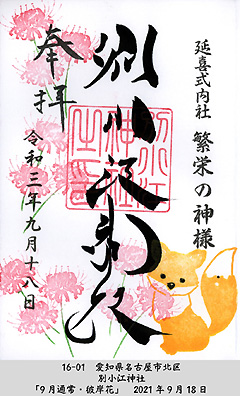 延喜式内社 繁栄の神様
別小江神社
奉拝
令和三年九月十八日
別小江
神社
之印
16-01 愛知県名古屋市北区
別小江神社
「9月通常・彼岸花」 2021年9月18日